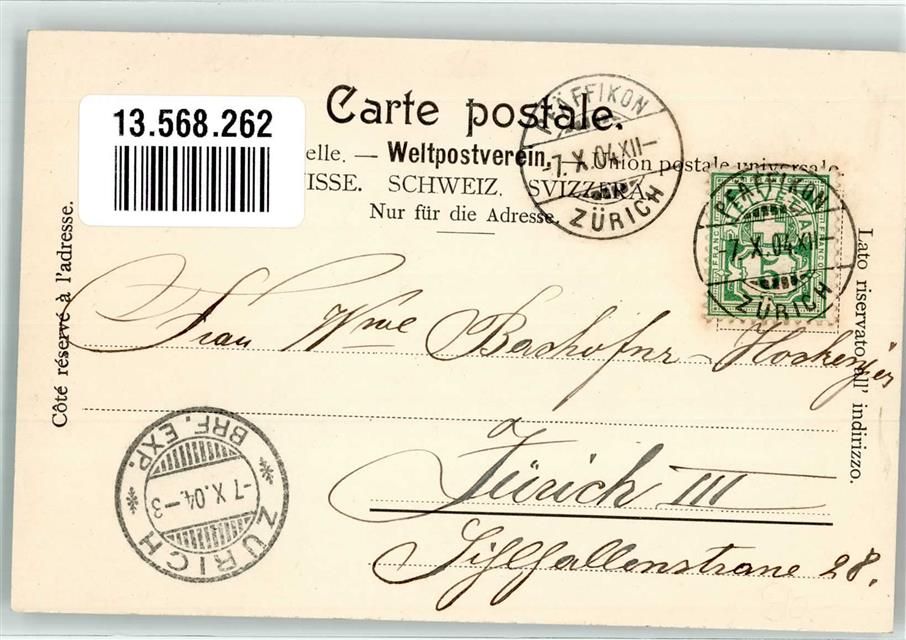 Carte postale.
13.568.262
elle. — Weltpostverein. — Union postale universale
ISSE. SCHWEIZ. SVIZZERA.
Nur für die Adresse.
PFÄFFIKON
-7.X.04.XII-
ZÜRICH
PFÄFFIKON
-7.X.04.XII-
ZÜRICH
FRANCO
5
Côté réservé à l'adresse.
Lato riservato all' indirizzo.
Frau Wwe
Zürich III
28.
ZÜRICH
-7.X.04.-3
BRF. EXP.